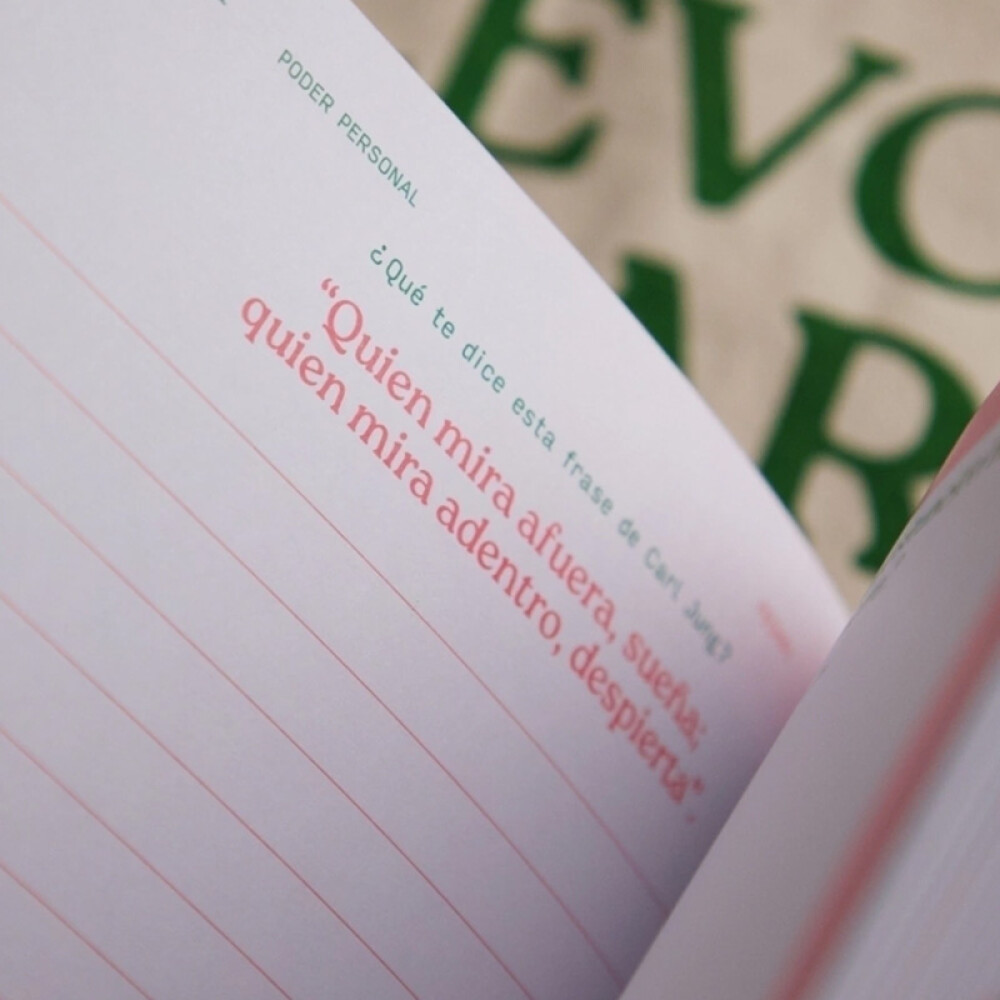 PODER PERSONAL
¿Qué te dice esta frase de Carl Jung?
“Quien mira afuera, sueña;
quien mira adentro, despierta”.
EVO
AR